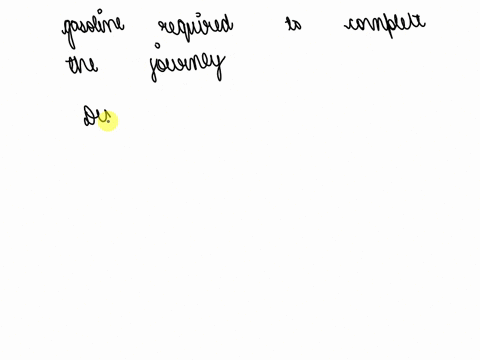 gasoline required to complet
the journey
Dis